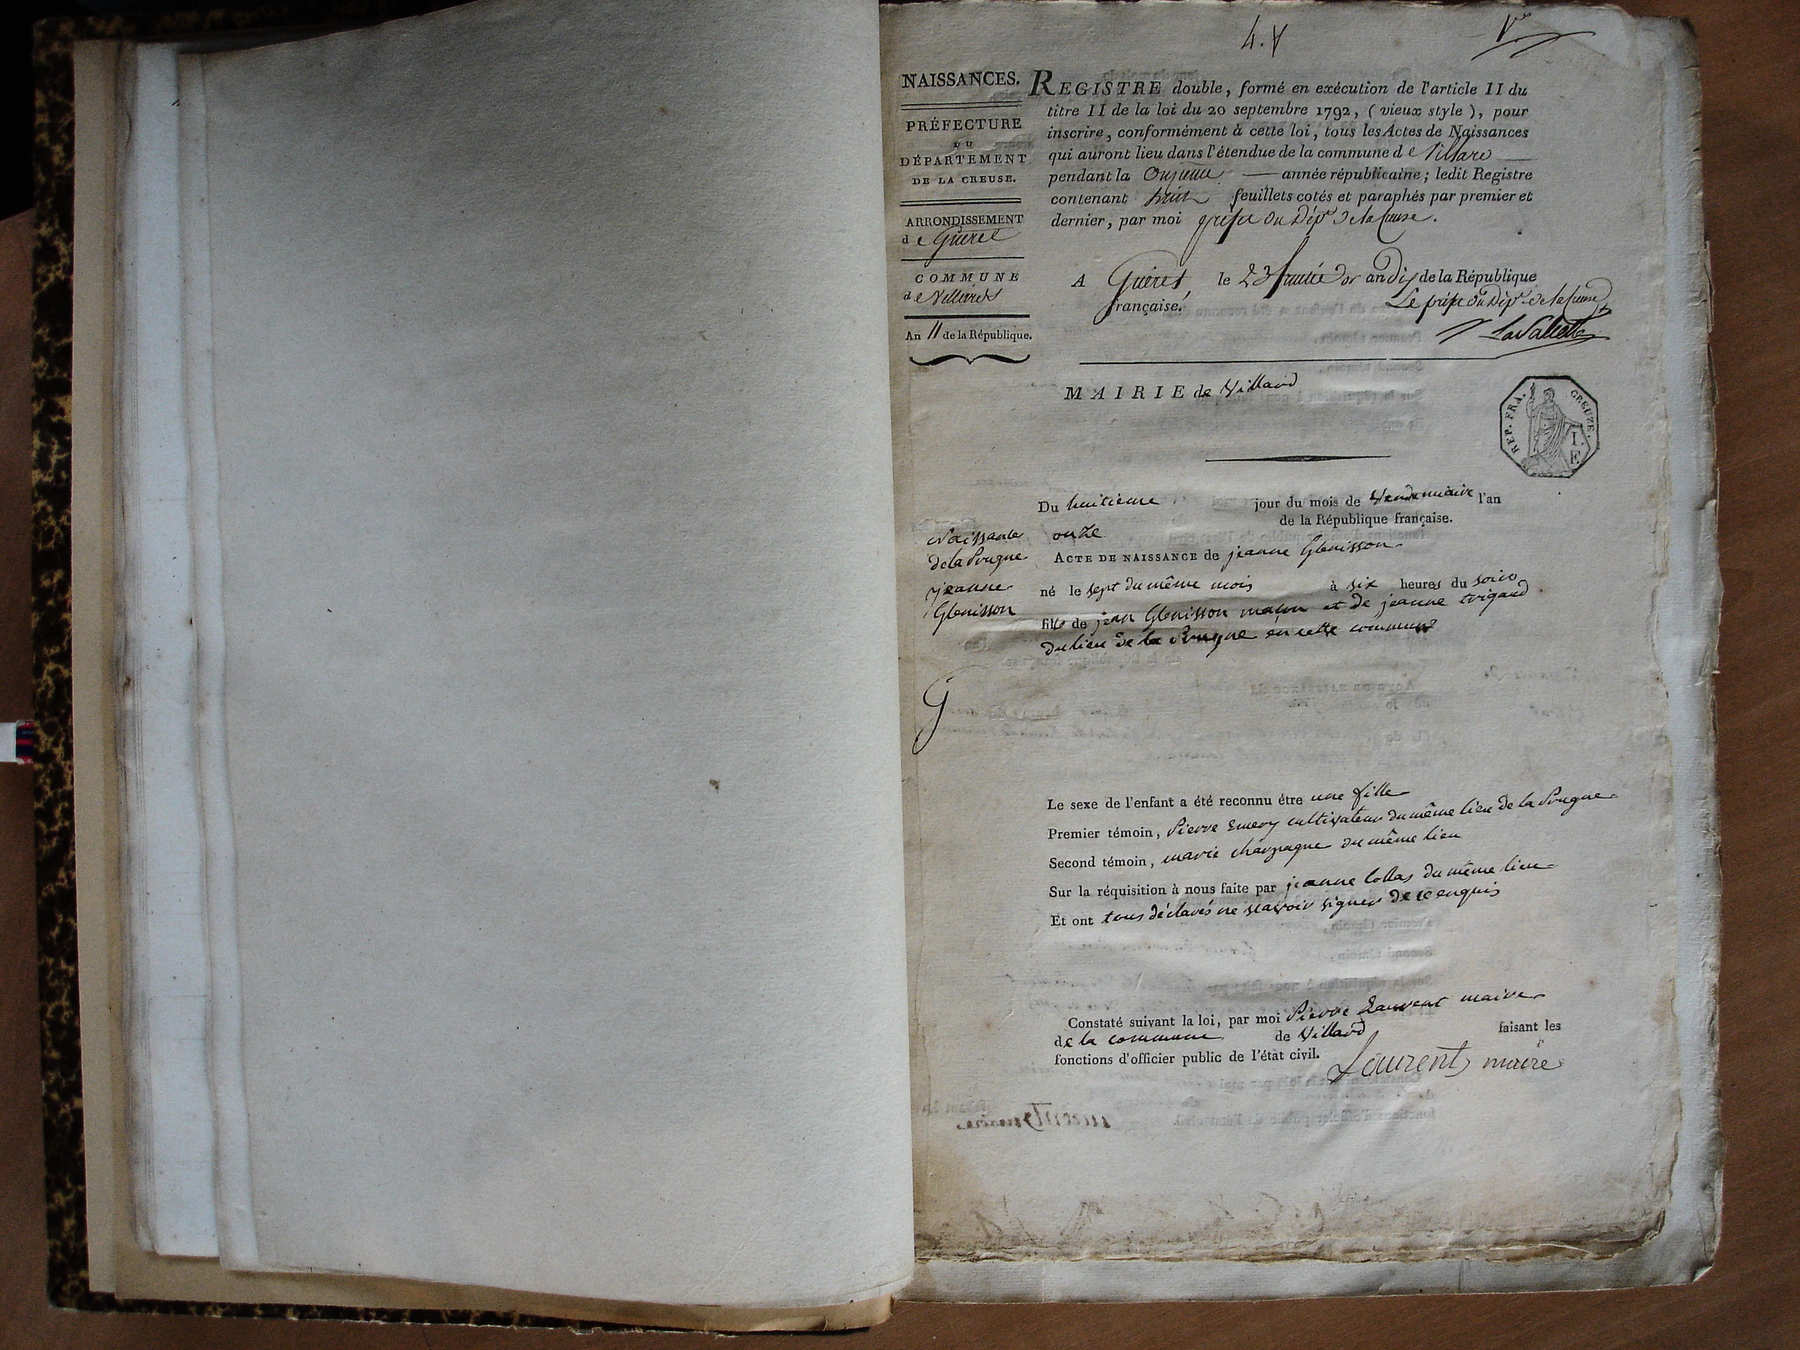 4. V
NAISSANCES.
PRÉFECTURE
DU
DÉPARTEMENT
DE LA CREUSE.
ARRONDISSEMENT
de Guéret
COMMUNE
de Villard
An 11 de la République.
REGISTRE double, formé en exécution de l'article II du
titre II de la loi du 20 septembre 1792, (vieux style), pour
inscrire, conformément à cette loi, tous les Actes de Naissances
qui auront lieu dans l'étendue de la commune de Villard
pendant la Onzieme année républicaine; ledit Registre
contenant huit feuillets cotés et paraphés par premier et
dernier, par moi préfet du Dépt de la Creuse.
A Guéret, le 23 fructidor an dix de la République
française.
Le préfet du Dépt de la Creuse
LaSalcette
MAIRIE de Villard
REP. FRA. CREUZE.
I.
E
Du huitieme jour du mois de Vendemiaire l'an
onze de la République française.
Naissance
de la Pougne
jeanne
Glenisson
ACTE DE NAISSANCE de jeanne Glenisson
né le sept du même mois à six heures du soir
fille de jean Glenisson maçon et de jeanne trigaud
du lieu de la Pougne en cette commune
G
Le sexe de l'enfant a été reconnu être une fille
Premier témoin, Pierre Emery cultivateur du même lieu de la Pougne
Second témoin, marie charpagne du même lieu
Sur la réquisition à nous faite par jeanne Collas du même lieu
Et ont tous déclarés ne scavoir signer de ce enquis
Constaté suivant la loi, par moi Pierre Laurent maire
de la commune de Villard faisant les
fonctions d'officier public de l'état civil.
Laurent maire